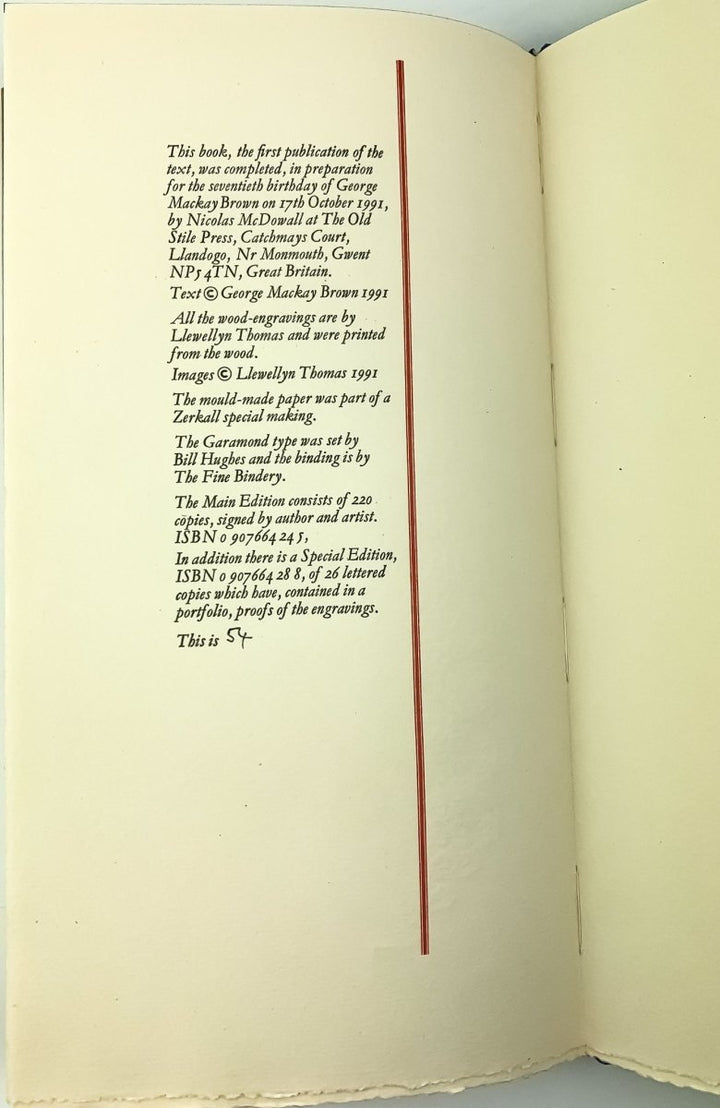 This book, the first publication of the
text, was completed, in preparation
for the seventieth birthday of George
Mackay Brown on 17th October 1991,
by Nicolas McDowall at The Old
Stile Press, Catchmays Court,
Llandogo, Nr Monmouth, Gwent
NP5 4TN, Great Britain.
Text © George Mackay Brown 1991
All the wood-engravings are by
Llewellyn Thomas and were printed
from the wood.
Images © Llewellyn Thomas 1991
The mould-made paper was part of a
Zerkall special making.
The Garamond type was set by
Bill Hughes and the binding is by
The Fine Bindery.
The Main Edition consists of 220
copies, signed by author and artist.
ISBN 0 907664 24 5,
In addition there is a Special Edition,
ISBN 0 907664 28 8, of 26 lettered
copies which have, contained in a
portfolio, proofs of the engravings.
This is 54